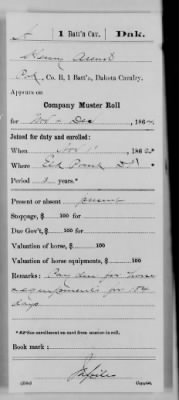 1 Batt'n Cav. Dak.
Co. B, 1 Batt'n, Dakota Cavalry.
Appears on
Company Muster Roll
for Nov & Dec, 186
Joined for duty and enrolled:
When Nov 1, 186
Where Elk Point D.T.
Period 3 years.*
Present or absent present
Stoppage, $ 100 for
Due Gov't, $ 100 for
Valuation of horse, $ 100
Valuation of horse equipments, $ 100
Remarks: Pay due for horse
equipments for 54
days
*See enrollment on card from muster-in roll.
Book mark:
Copyist.